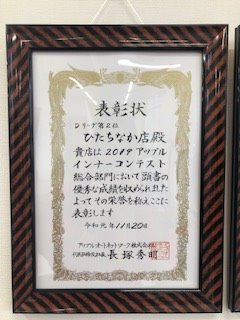 表彰状
Dリーグ第2位
ひたちなか店殿
貴店は2019アップル
インナーコンテスト
総合部門において頭書の
優秀な成績を収められました
よってその栄誉を称えここに
表彰します
令和元年11月20日
アップルオートネットワーク株式会社
代表取締役社長 長塚秀明